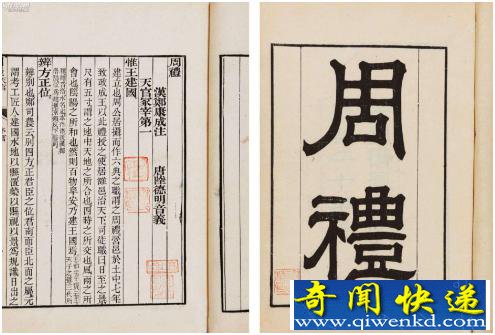 周禮
漢鄭康成注　唐陸德明音義
天官冢宰第一
惟王建國
建立也周公居攝而作六典之職謂之周禮營邑於土中七年
致政成王以此禮授之使居雒邑治天下司徒職曰日至之景
尺有五寸謂之地中天地之所合也四時之所交也風雨之所
會也陰陽之所和也然則百物阜安乃建王國焉
辨方正位
辨別也鄭司農云別四方正君臣之位君南面臣北面之屬元
謂考工匠人建國水地以縣置槷以縣眡以景為規識日出之
周禮
奇闻快递
www.qiwenkd.com